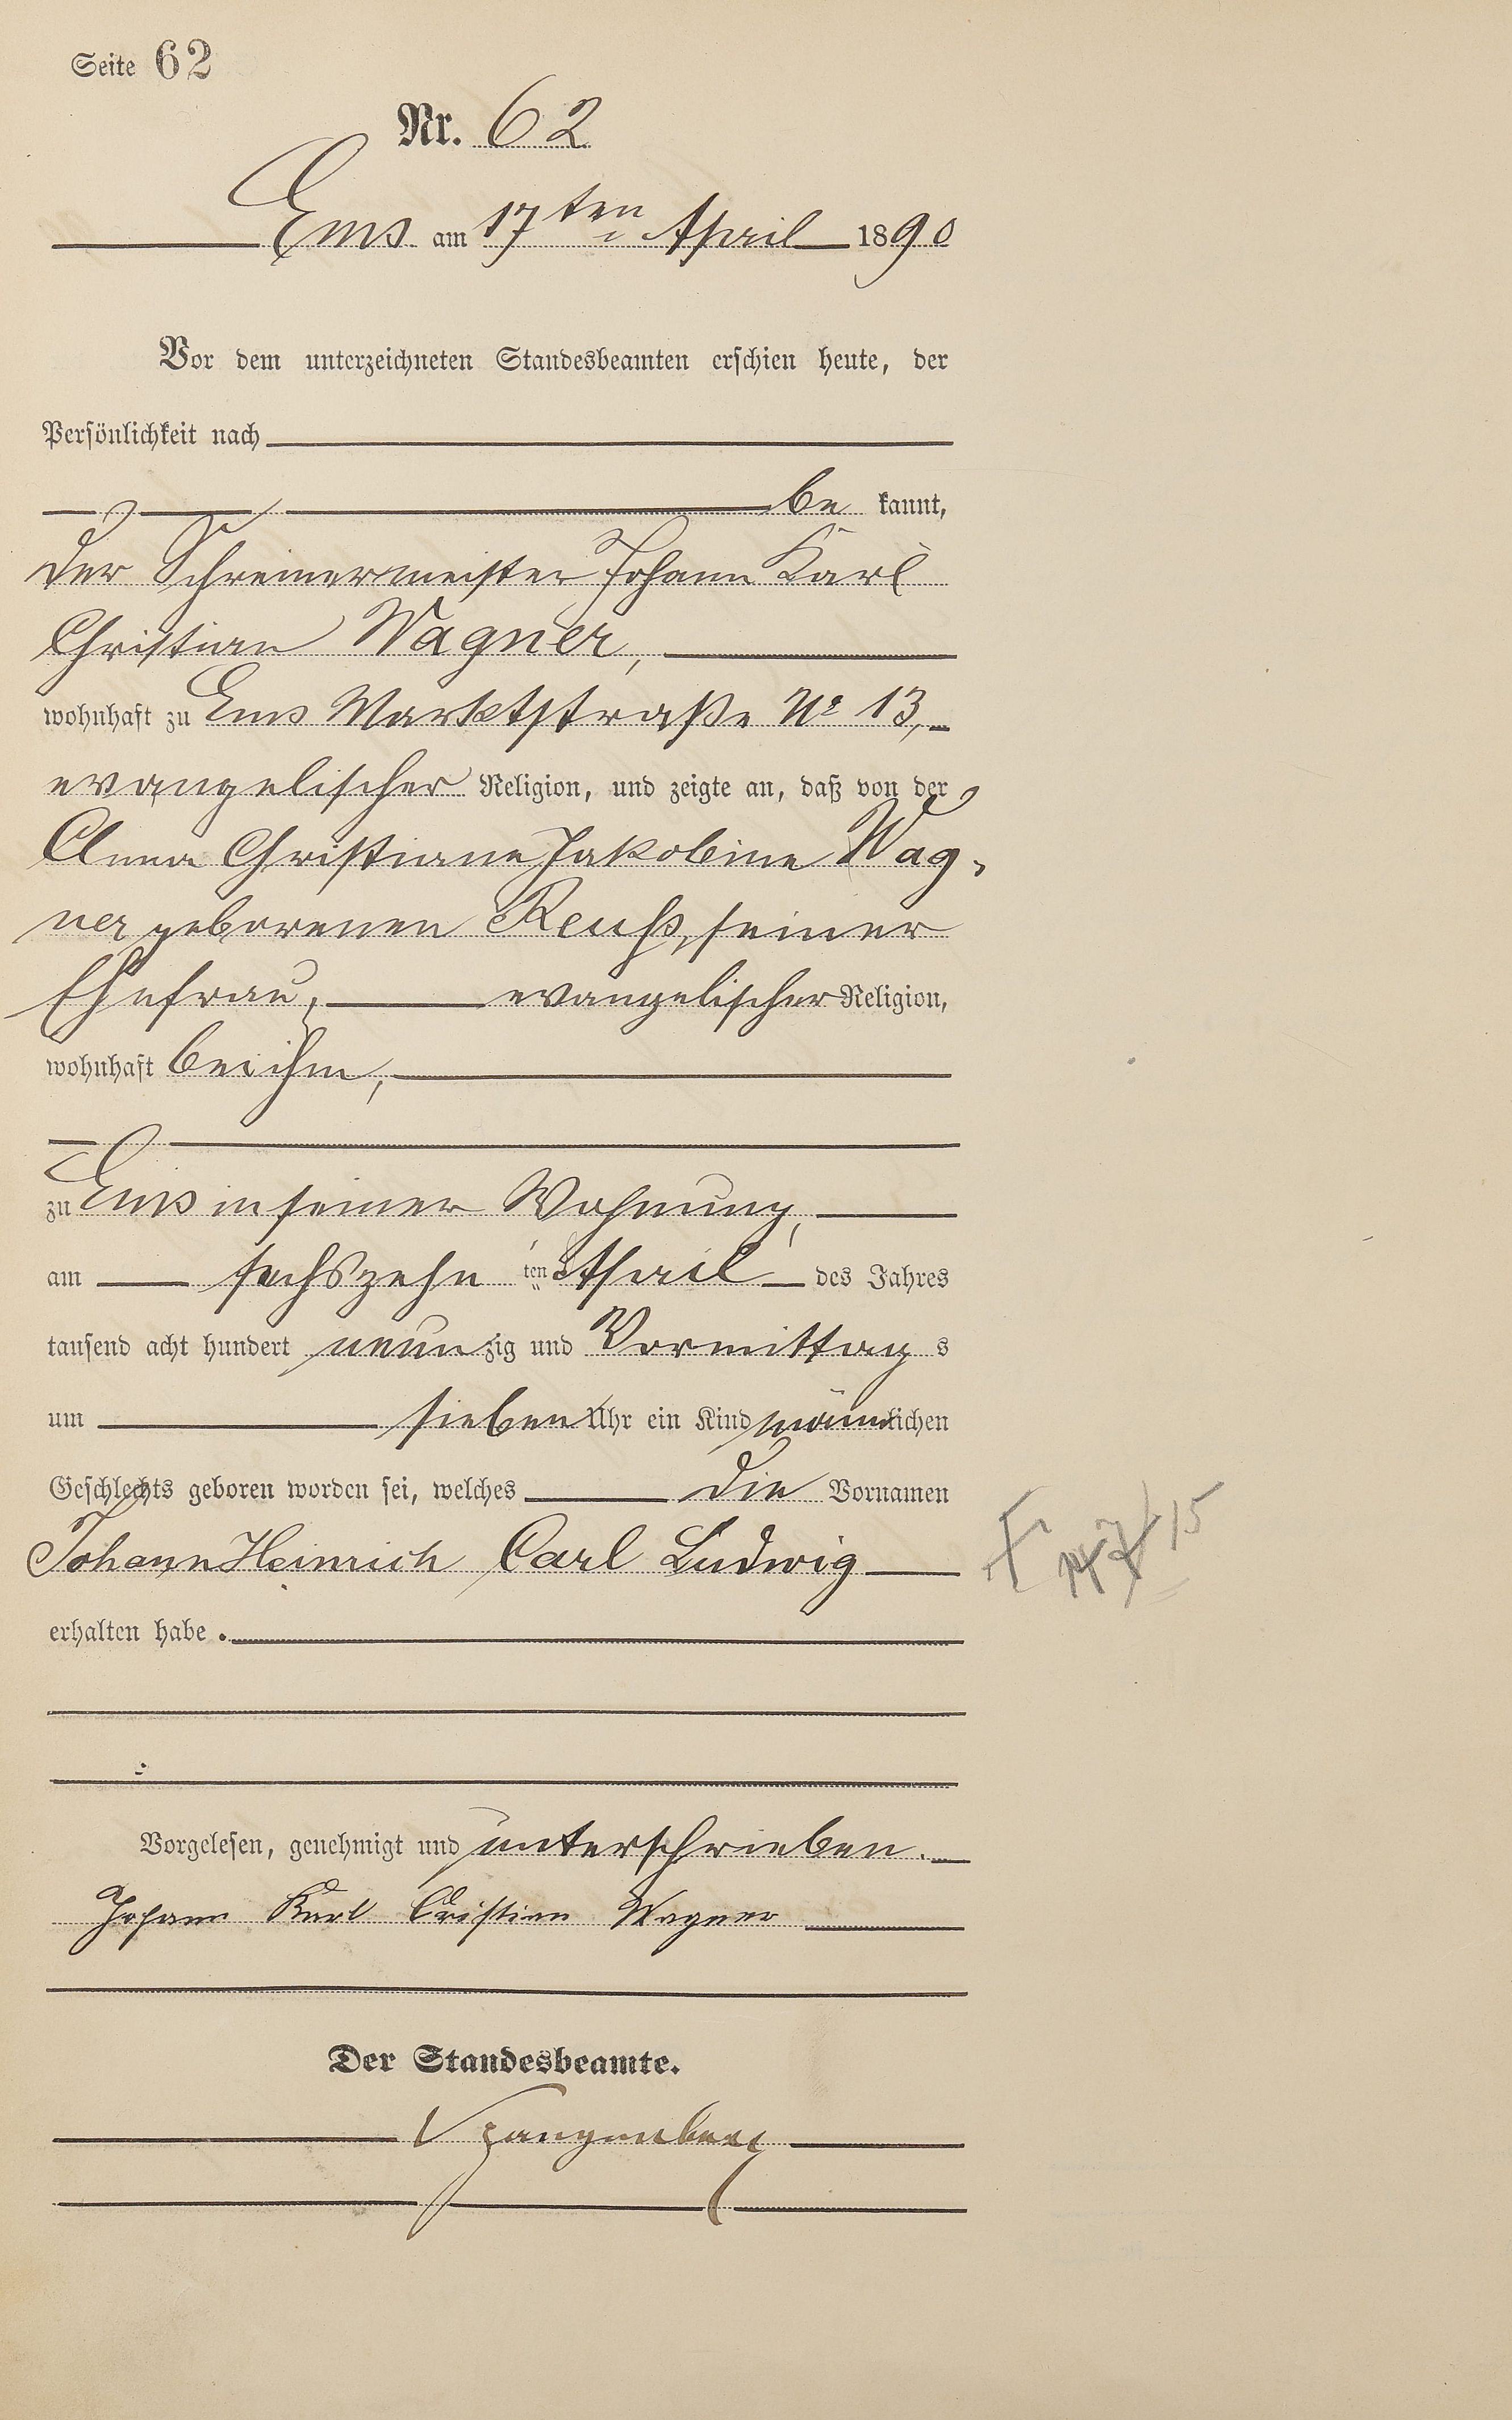 Seite 62
Nr. 62
Ems am 17ten April 1890
Vor dem unterzeichneten Standesbeamten erschien heute, der
Persönlichkeit nach
be kannt,
der Schreinermeister Johann Karl
Christian Wagner,
wohnhaft zu Ems Marktstraße No 13,
evangelischer Religion, und zeigte an, daß von der
Anna Christiane Jakobine Wag-
ner geborenen Reuß, seiner
Ehefrau, evangelischer Religion,
wohnhaft bei ihm,
zu Ems in seiner Wohnung,
am sechszehn ten April des Jahres
tausend acht hundert neunzig und Vormittag s
um sieben Uhr ein Kind männlichen
Geschlechts geboren worden sei, welches die Vornamen
Johann Heinrich Carl Ludwig
erhalten habe.
Vorgelesen, genehmigt und unterschrieben.
Johann Karl Christian Wagner
Der Standesbeamte.
Spangenberg